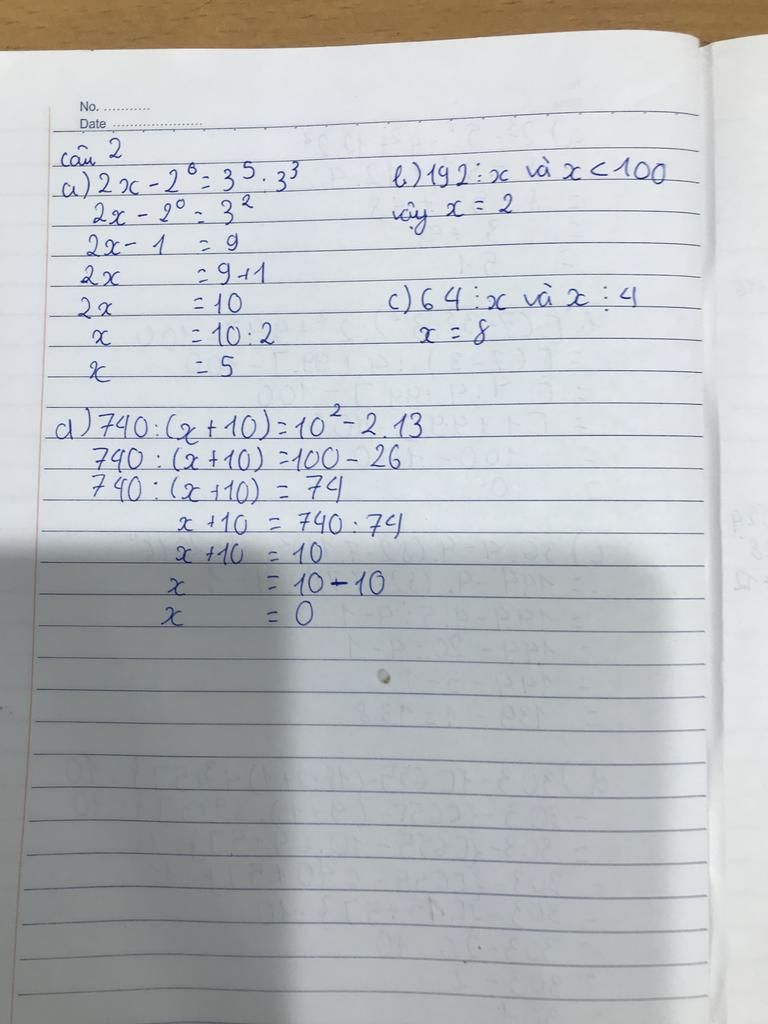 No. ...........
Date .....................
câu 2
a) 2x - 2⁰ = 3⁵ : 3³
2x - 2⁰ = 3²
2x - 1 = 9
2x = 9+1
2x = 10
x = 10 : 2
x = 5
b) 192 ⋮ x và x < 100
vậy x = 2
c) 64 ⋮ x và x ⋮ 4
x = 8
d) 740 : (x + 10) = 10² - 2.13
740 : (x+10) = 100 - 26
740 : (x+10) = 74
x +10 = 740 : 74
x +10 = 10
x = 10 - 10
x = 0